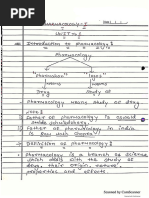 Pharmacology-I
UNIT-1
Introduction to Pharmacology :
Pharmacology
"Pharmakon" "logos"
means means
Drug Study
Pharmacology means study of drug
Father of Pharmacology is oswald
Father of Pharmacology in India
is
Definition of Pharmacology :
Pharmacology is a branch of science
which deals with the study of
drug, their origin, nature,
properties and effects
Scanned by CamScanner